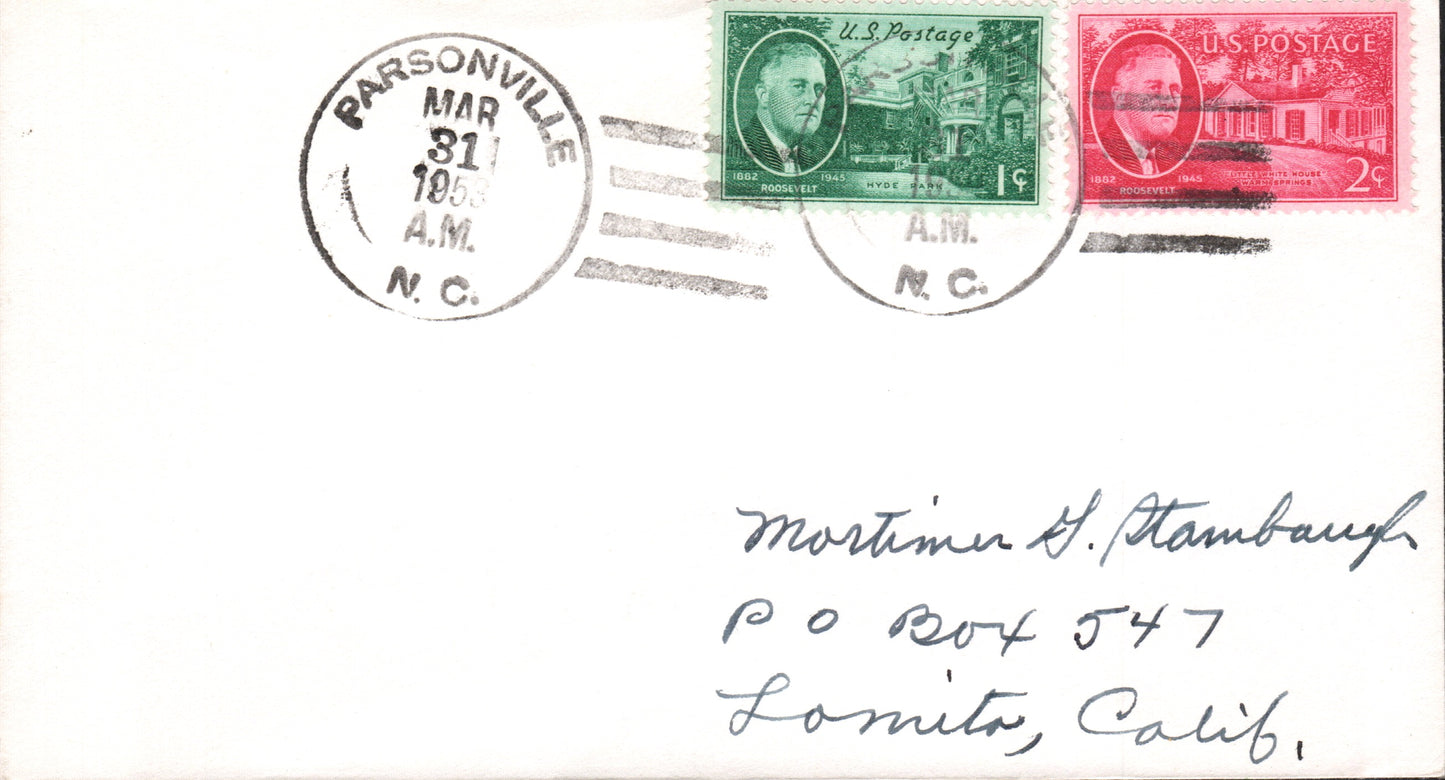 PARSONVILLE
MAR
31
1953
A.M.
N. C.
U.S. Postage
1882 1945
ROOSEVELT
HYDE PARK
1¢
A.M.
N. C.
U.S. POSTAGE
1882 1945
ROOSEVELT
LITTLE WHITE HOUSE
WARM SPRINGS
2¢
Mortimer G. Stambaugh
P O Box 547
Lomita, Calif.